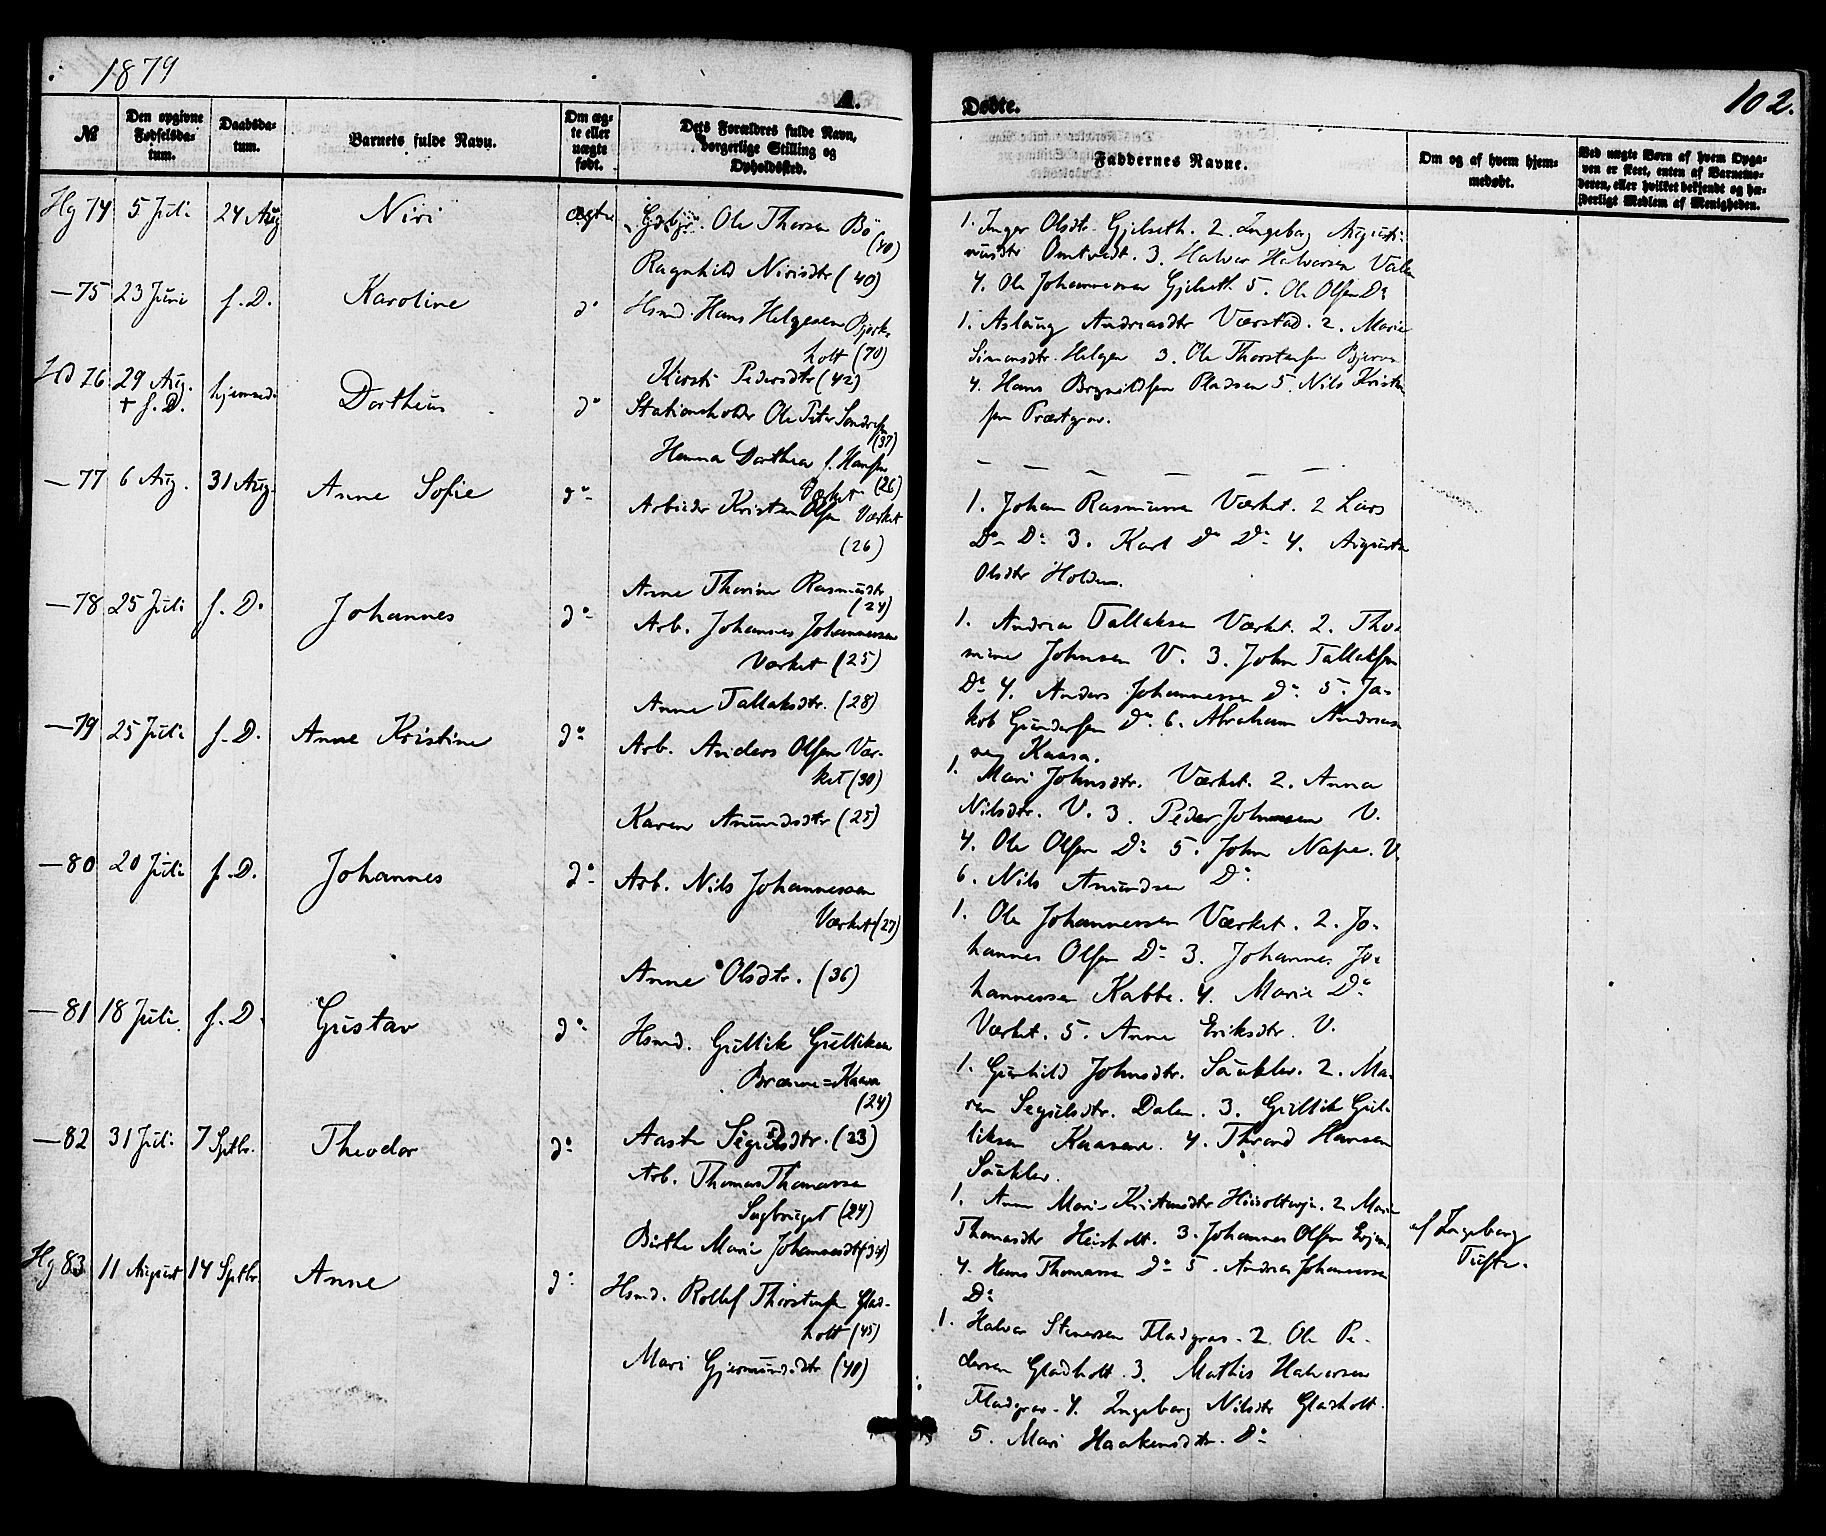 1879
A.
Døbte.
102.
№
Den opgivne Fødselsdatum.
Daabsdatum.
Barnets fulde Navn.
Om ægte eller uægte født.
Dets Forældres fulde Navn, borgerlige Stilling og Opholdssted.
Faddernes Navne.
Om og af hvem hjemmedøbt.
Ved uægte Børn af hvem Opgaven er skeet, enten af Barnemoderen, eller hvilket bekjendt og hæderligt Medlem af Menigheden.
Hg 74 5 Juli 24 Aug Niri ægte Gdbr. Ole Thorsen Bö (40)
Ragnhild Nirisdtr (40)
1. Inger Olsdtr. Gjelseth. 2. Ingeborg Augusti-
nusdtr Omtvedt. 3. Halvor Halvorsen Valen
4. Ole Johannesen Gjelseth 5. Ole Olsen Do
—75 23 Juni s. D. Karoline do Hsmd. Hans Helgesen Bjerk-
holt (70)
Kirsti Pedersdtr (42)
1. Aslaug Andreasdtr Værstad. 2. Marie
Simonsdtr. Helgen 3. Ole Thorstensen Bjerva
4. Hans Brynildsen Pladsen 5. Nils Kristen
sen Præstgrav.
Hd 76 29 Aug. + s. D. hjemmed. Dortheus do Stationsholder Ole Peter Sondresen (37)
Hanna Dorthea f. Hansen
Værket (26)
— — — — — —
—77 6 Aug. 31 Aug. Anne Sofie do Arbeider Kristen Olsen Værket
(26)
Anne Thorine Rasmusdtr
(24)
1. Johan Rasmussen Værket. 2 Lars
Do Do 3. Karl Do Do 4. Augusta
Olsdtr Holden.
—78 25 Juli s. D. Johannes do Arb. Johannes Johannesen
Værket (25)
Anne Tallaksdtr. (28)
1. Andrea Tallaksen Værket. 2. Tho-
mine Johnsen V. 3. John Tallaksen
Do 4. Anders Johannessen do 5. Ja-
kob Gundersen Do 6. Abraham Andreas
sen Kaasa.
—79 25 Juli s. D. Anne Kristine do Arb. Anders Olsen Vær-
ket (30)
Karen Amundsdtr (25)
1. Mari Johnsdtr. Værket. 2. Anna
Nilsdtr. V. 3. Peder Johnsen V.
4. Ole Olsen Do 5. John Nape. V.
6. Nils Amundsen Do
—80 20 Juli s. D. Johannes do Arb. Nils Johannessen
Værket (27)
Anne Olsdtr. (36)
1. Ole Johannessen Værket. 2. Jo-
hannes Olsen Do 3. Johannes Jo-
hannessen Kabbe. 4. Marie Do
Værket. 5. Anne Eriksdtr. V.
—81 18 Juli s. D. Gustav do Hsmd. Gullik Gulliksen
Bræne=Kaasa
(24)
Aaste Segulsdtr. (23)
1. Gunhild Johnsdtr. Saukler. 2. Ma-
ren Segulsdtr. Dalen. 3. Gullik Gul-
liksen Kaasene. 4. Thrond Hansen
Saukler.
—82 31 Juli 7 Sptbr. Theodor do Arb. Thomas Thomassen
Sagbruget (24)
Birthe Marie Johannesdtr (34)
1. Anne Marie Kristensdtr 2. Marie
Thomasdtr Heisholt. 3. Johannes Olsen
4. Hans Thomassen do 5. Andreas Johannessen
Do
af Ingeborg
Tufte.
Hg 83 11 August 14 Sptbr. Anne do Hsmd. Rollef Thorstensen Glad-
holt (45)
Mari Gjermundsdtr (40)
1. Halvor Stenersen Fladgrav. 2. Ole Pe-
dersen Gladholt. 3. Mathis Halvorsen
Fladgrav. 4. Ingeborg Nilsdtr Gladholt.
5. Mari Haakensdtr. Do